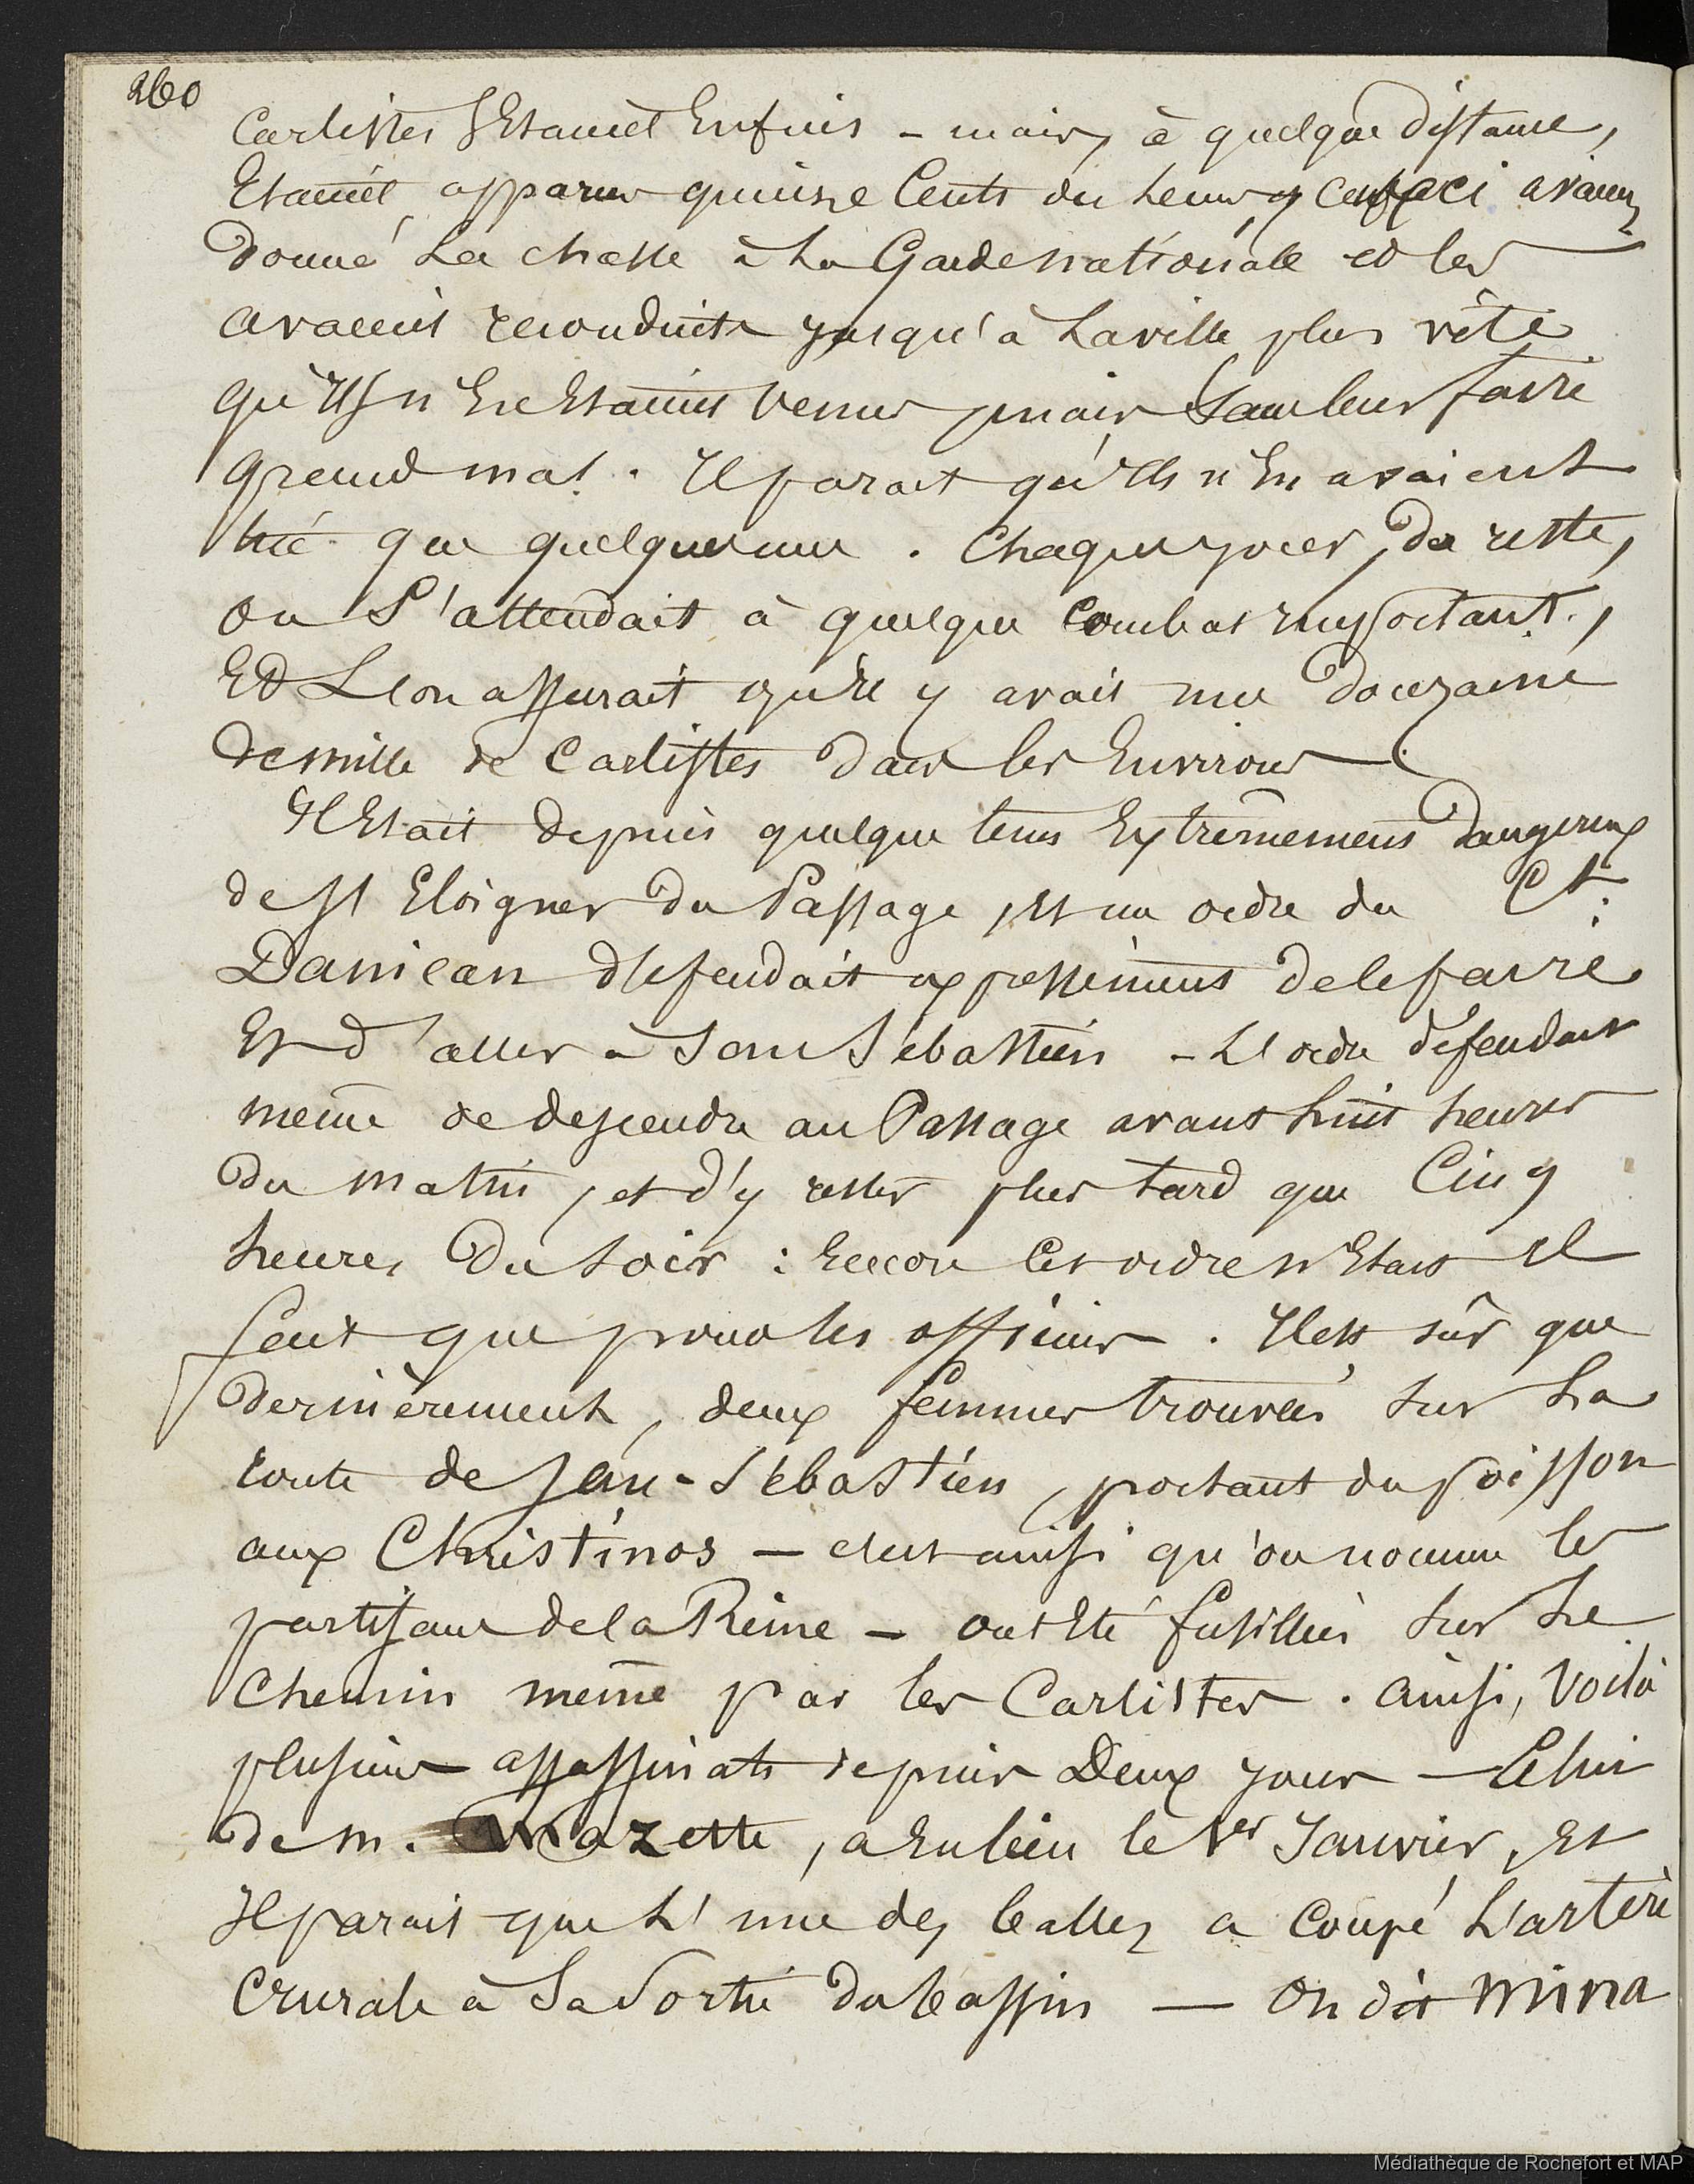 260
Carlistes S'Etaient Enfuis - mais, à quelque distance,
Etaient apparus quinze Cents des leurs, et ceux ci avaient
donné la chasse à la Garde nationale et les
avaient reconduits jusqu'à la ville plus vite
qu'Ils n'En Etaient venus, mais Sans leur faire
grand mal. Il parait qu'Ils n'En avaient
tué que quelques uns. Chaque jour, du reste,
on S'attendait à quelque Combat Important,
Et L'on assurait qu'Il y avait une douzaine
de mille de Carlistes dans les Environs.
Il Etait depuis quelque tems Extrêmement dangereux
de s'Eloigner du Passage, Et un ordre du Ct.
Danican défendait expressément de le faire
Et d'aller à San Sébastien - L'ordre défendait
même de descendre au Passage avant huit heures
du matin, et d'y rester plus tard que Cinq
heures du soir : Encore cet ordre n'Etait Il
fait que pour les officiers. Il est sûr que
dernièrement, deux femmes trouvées sur la
route de San-Sébastien, portant du poisson
aux Christinos — c'est ainsi qu'on nomme les
partisans de la Reine — ont Eté fusillées sur le
Chemin même par les Carlistes. Ainsi, Voilà
plusieurs assassinats depuis Deux jours — Celui
de m. Mazette, a Eu lieu le 1er Janvier, Et
Il parait que L'une des balles a Coupé L'artère
Crurale à Sa Sortie du bassin — On dit Mina
Médiathèque de Rochefort et MAP